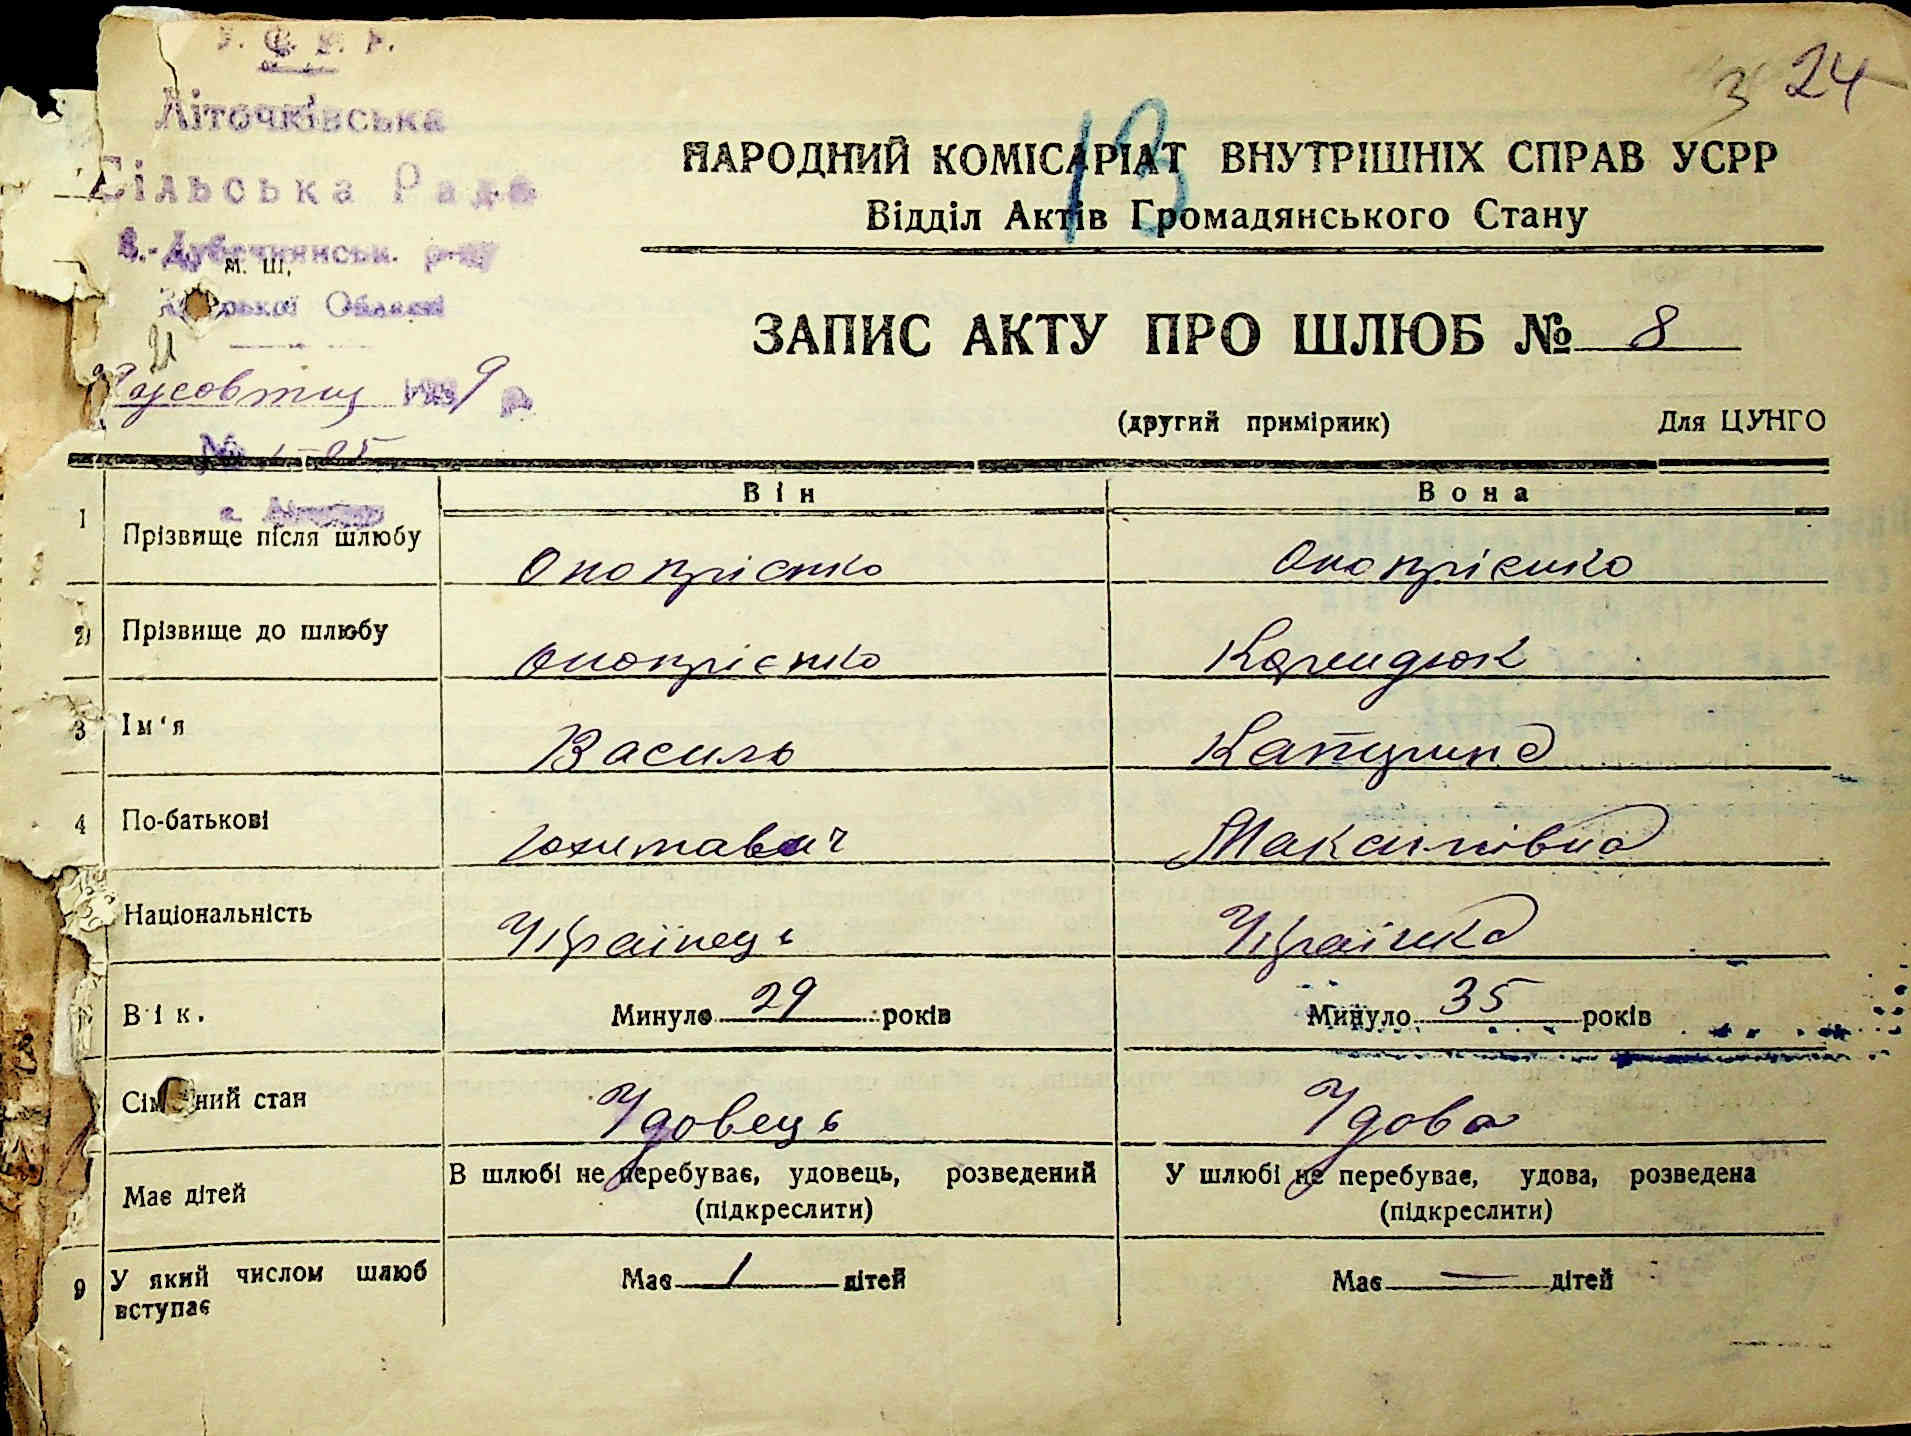 3 24
Літочківська
Сільська Рада
В.-Дубечнянськ. р-ну
м. ш.
Області
13
НАРОДНИЙ КОМІСАРІАТ ВНУТРІШНІХ СПРАВ УСРР
Відділ Актів Громадянського Стану
ЗАПИС АКТУ ПРО ШЛЮБ № 8
(другий примірник) Для ЦУНГО
Він Вона
1 Прізвище після шлюбу Онопрієнко Онопрієнко
2 Прізвище до шлюбу Онопрієнко
3 Ім'я Василь Катерина
4 По-батькові Максимівна
Національність Українець Українка
Вік. Минуло 29 років Минуло 35 років
стан Удовець Удова
Має дітей В шлюбі не перебуває, удовець, розведений У шлюбі не перебуває, удова, розведена
(підкреслити) (підкреслити)
9 У який числом шлюб Має 1 дітей Має — дітей
вступає